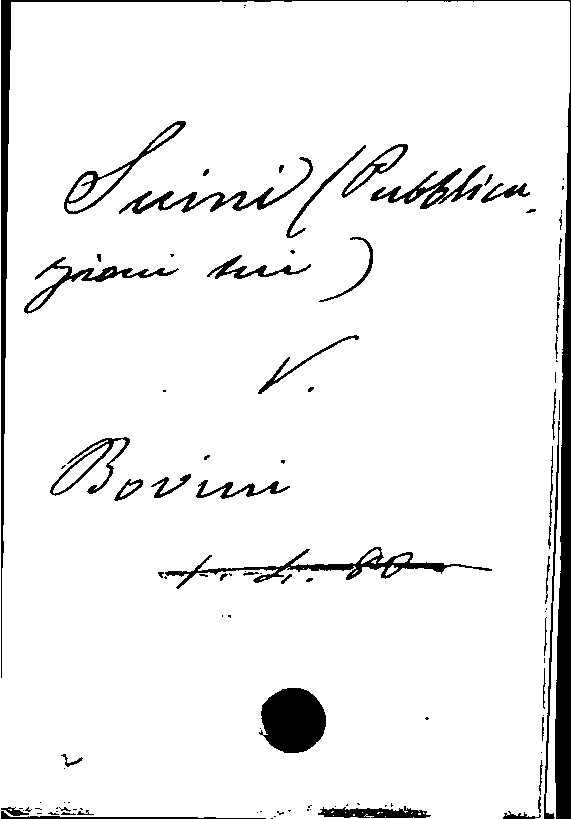 Suini (Pubblica-
zioni sui)
V.
Bovini